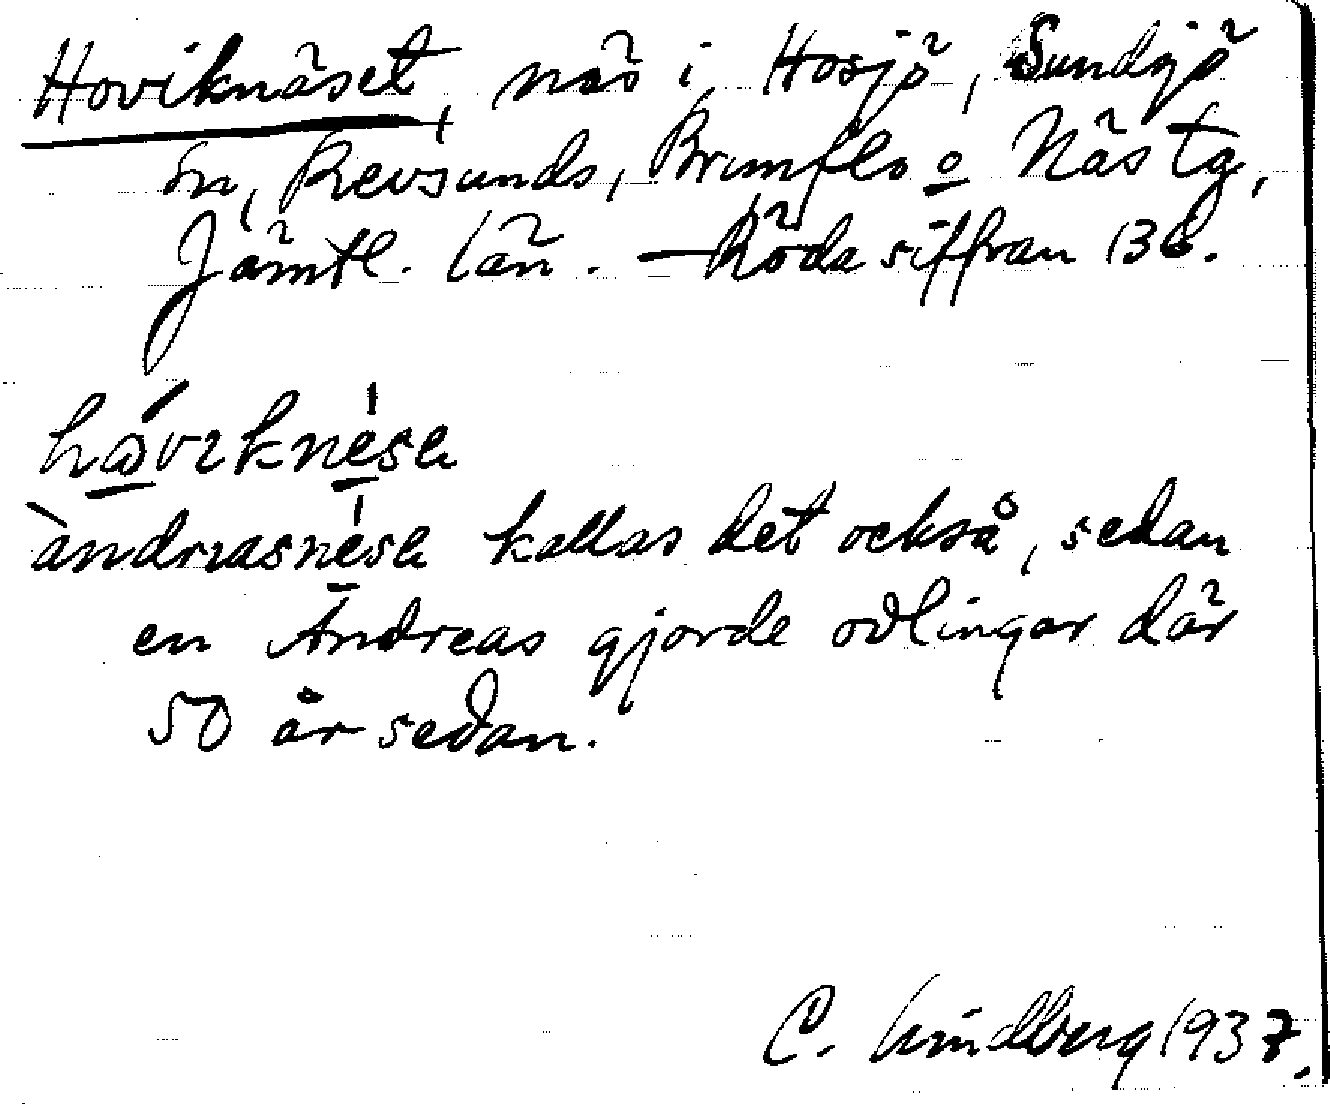 Hoviknäset, näs i Hosjö, Sundsjö
sn, Revsunds, Brunflo o Näs tg,
Jämtl. län. — Röda siffran 136.
hǻvıknesa
àndrıasnesa kallas det också, sedan
en Andreas gjorde odlingar där
50 år sedan.
C. Lindberg 1937.